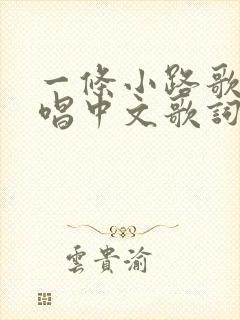 一條小路歌
唱中文歌詞
雲貴渝